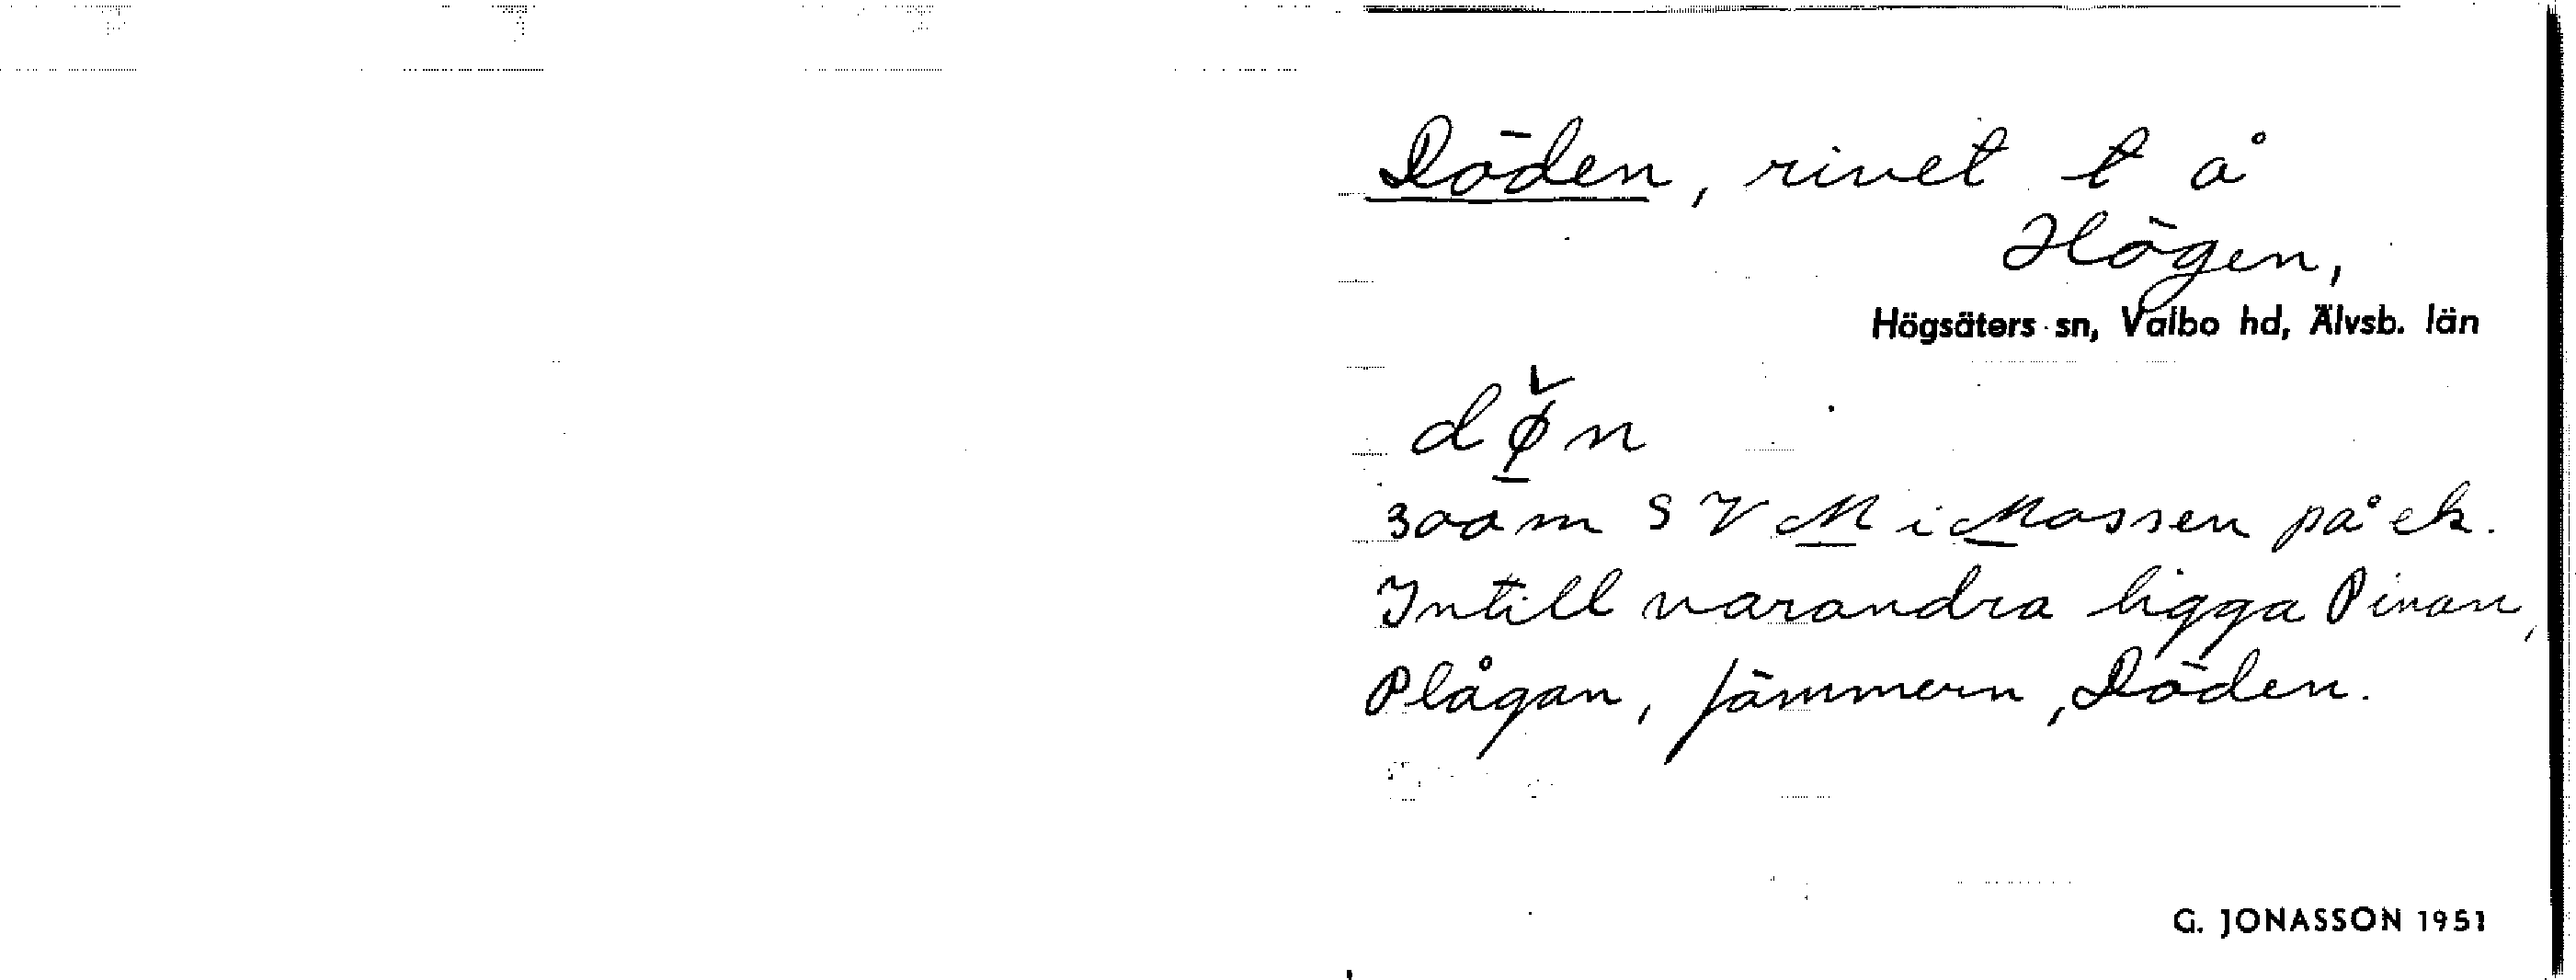 Döden, rivet t å
Högen,
Högsäters sn, Valbo hd, Älvsb. län
dø̌n
300 m SV M i Mossen på ek.
Intill varandra ligga Pinan,
Plågan, Jämmern, Döden.
G. JONASSON 1951